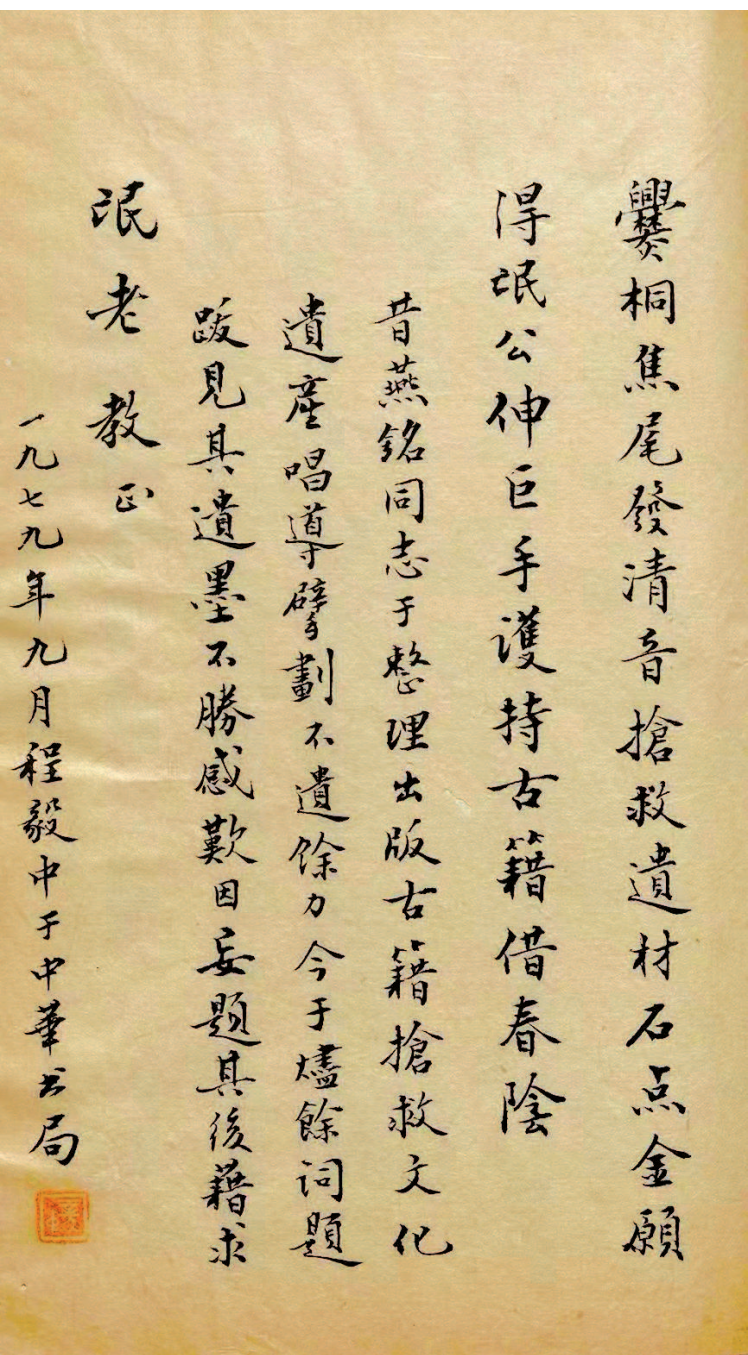 爨桐焦尾發清音搶救遺材石点金願
得泯公伸巨手護持古籍借春陰
昔燕銘同志于整理出版古籍搶救文化
遺産唱導擘劃不遺餘力今于燼餘词題
跋見其遺墨不勝感歎因妄題其後藉求
泯老教正
一九七九年九月程毅中于中華书局